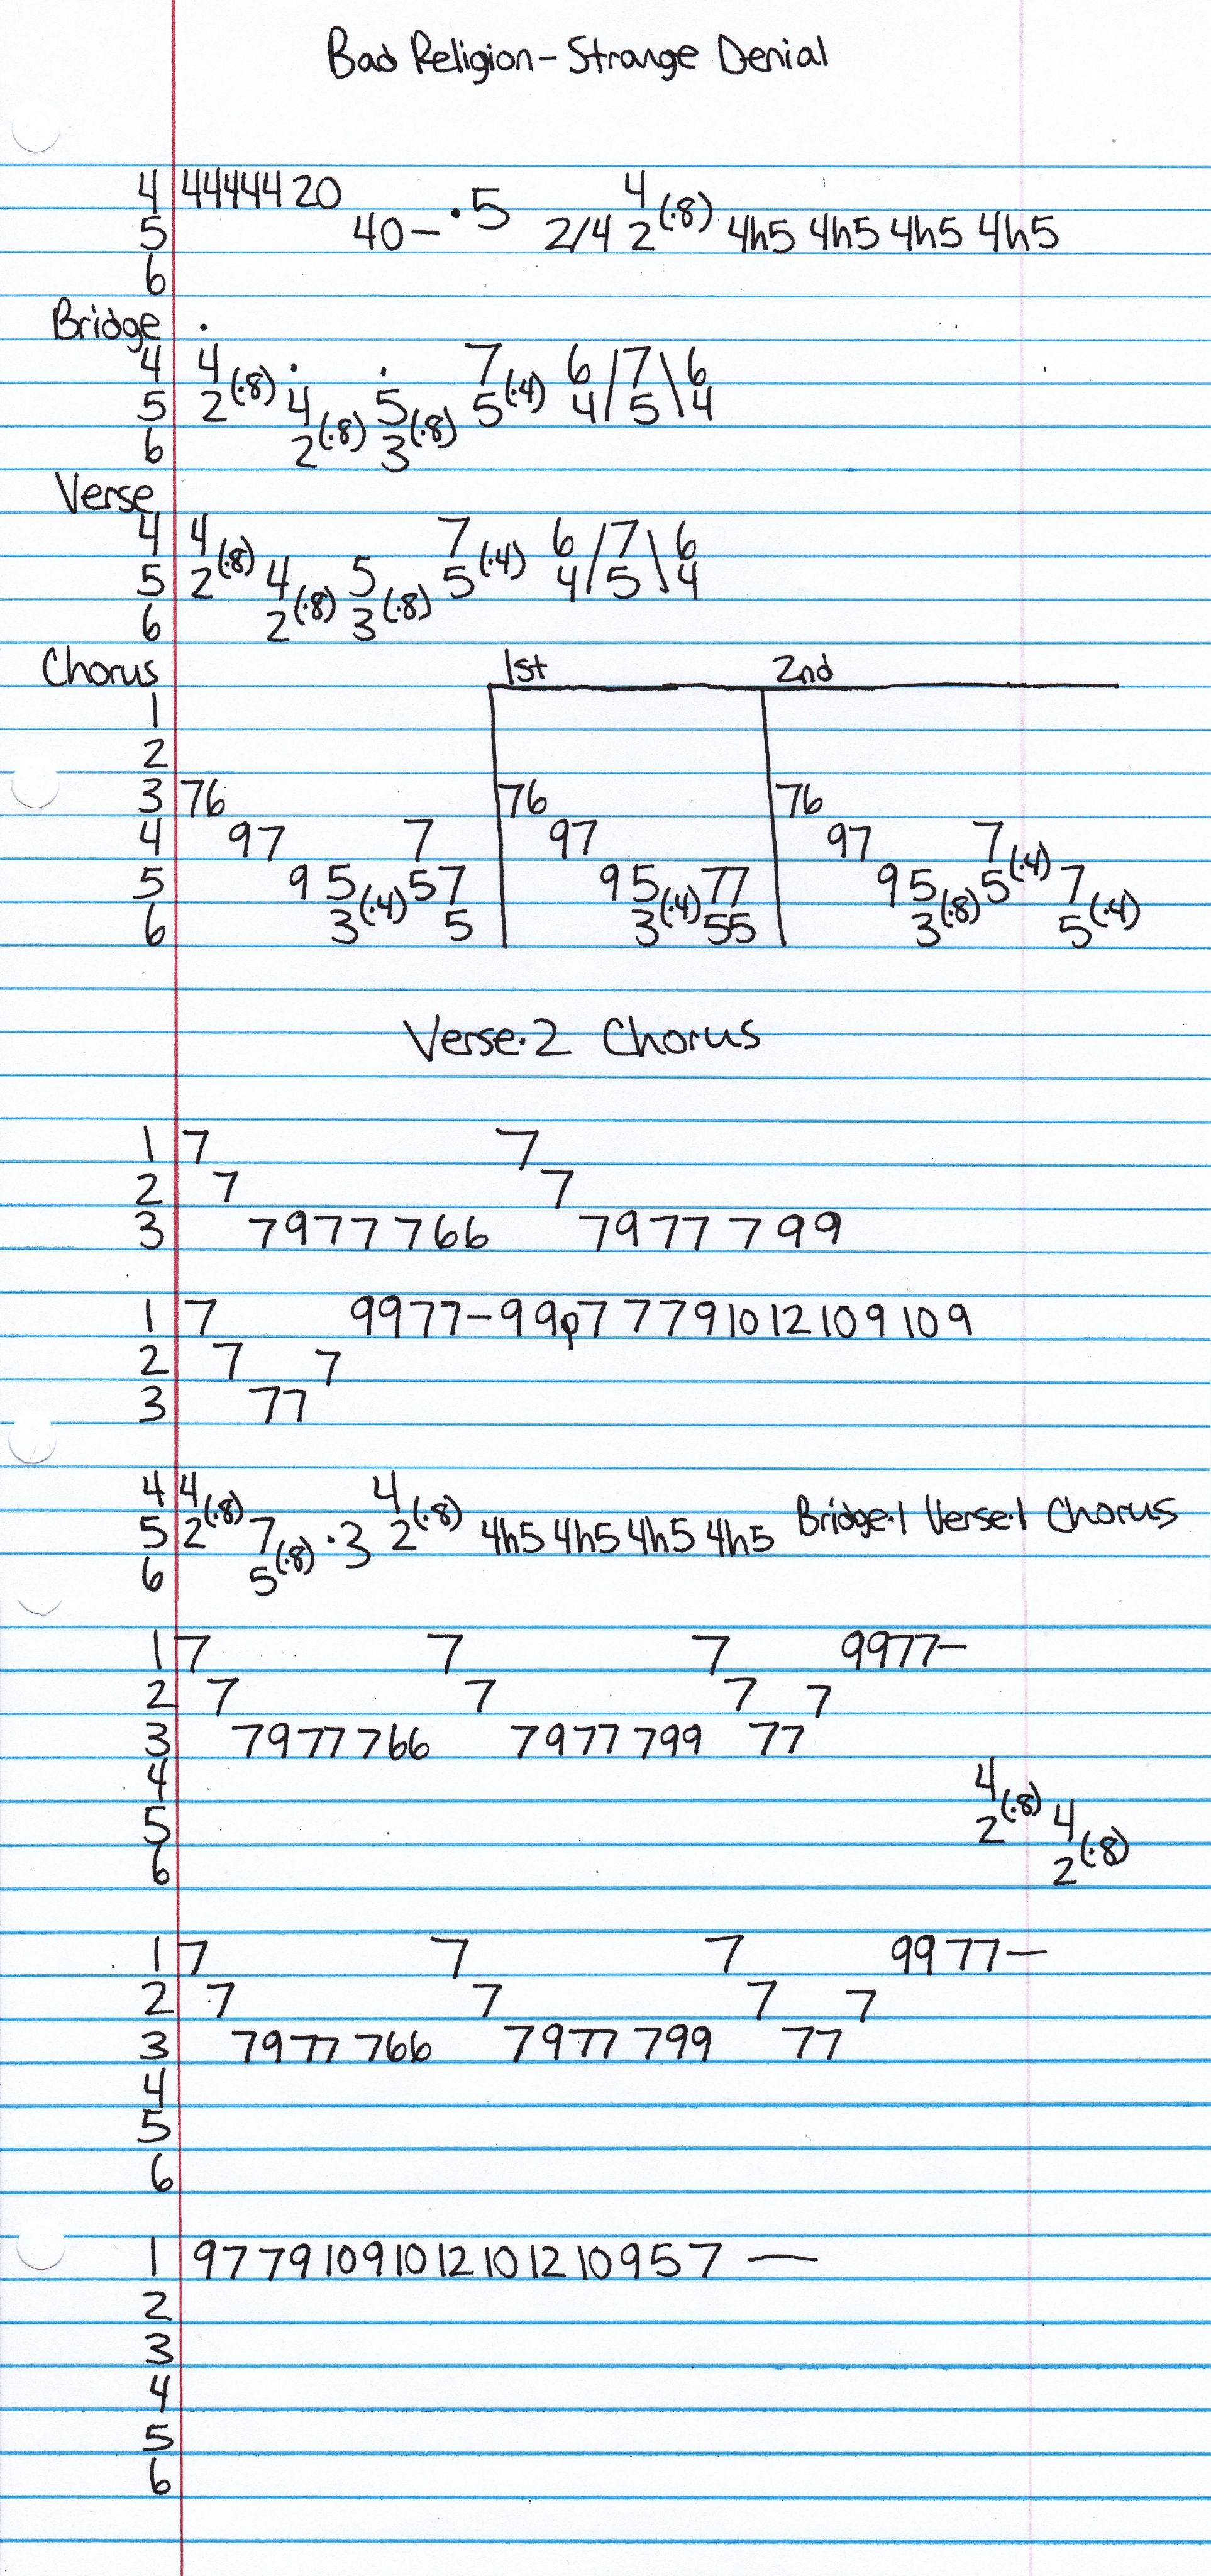 Bad Religion - Strange Denial
4 44444 20 4
5 40- ·5 2/4 2(·8) 4h5 4h5 4h5 4h5
6
Bridge
4 4 7 6/7\6
5 2(·8) 4 5 5(·4) 4/5\4
6 2(·8) 3(·8)
Verse
4 4 7 6/7\6
5 2(·8) 4 5 5(·4) 4/5\4
6 2(·8) 3(·8)
Chorus 1st 2nd
1
2
3 76 76 76
4 97 7 97 97 7
5 9 5 57 9 5 77 9 5 5(·4) 7
6 3(·4) 5 3(·4) 55 3(·8) 5(·4)
Verse·2 Chorus
1 7 7
2 7 7
3 7977 766 7977 799
1 7 9977-99p7 7 7 9 10 12 10 9 10 9
2 7 7
3 77
4 4 4
5 2(·8) 7 ·3 2(·8) 4h5 4h5 4h5 4h5 Bridge·1 Verse·1 Chorus
6 5(·8)
1 7 7 7 9977-
2 7 7 7 7
3 7977 766 7977 799 77
4 4
5 2(·8) 4
6 2(·8)
1 7 7 7 9977-
2 7 7 7 7
3 7977 766 7977 799 77
4
5
6
1 9 7 7 9 10 9 10 12 10 12 10 9 5 7 -
2
3
4
5
6